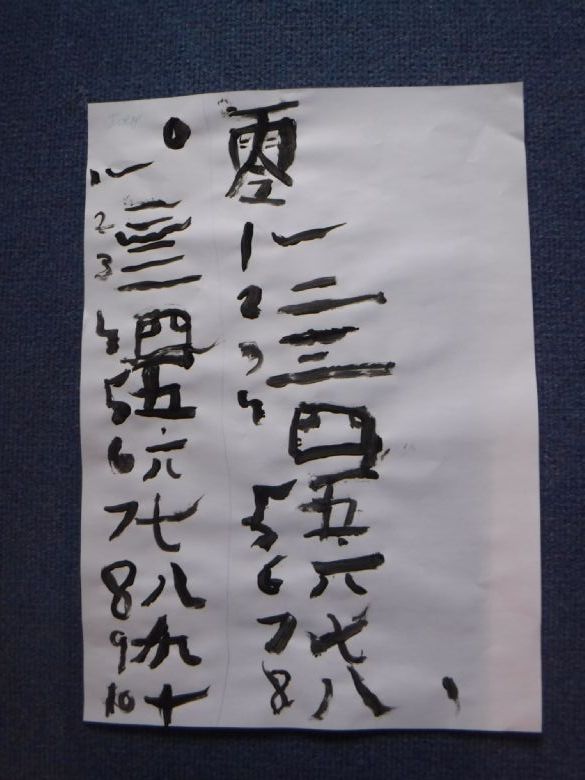 0
1 一
2 二
3 三
4 四
5 五
6 六
7 七
8 八
9 九
10 十
零
1 一
2 二
3 三
4 四
5 五
6 六
7 七
8 八